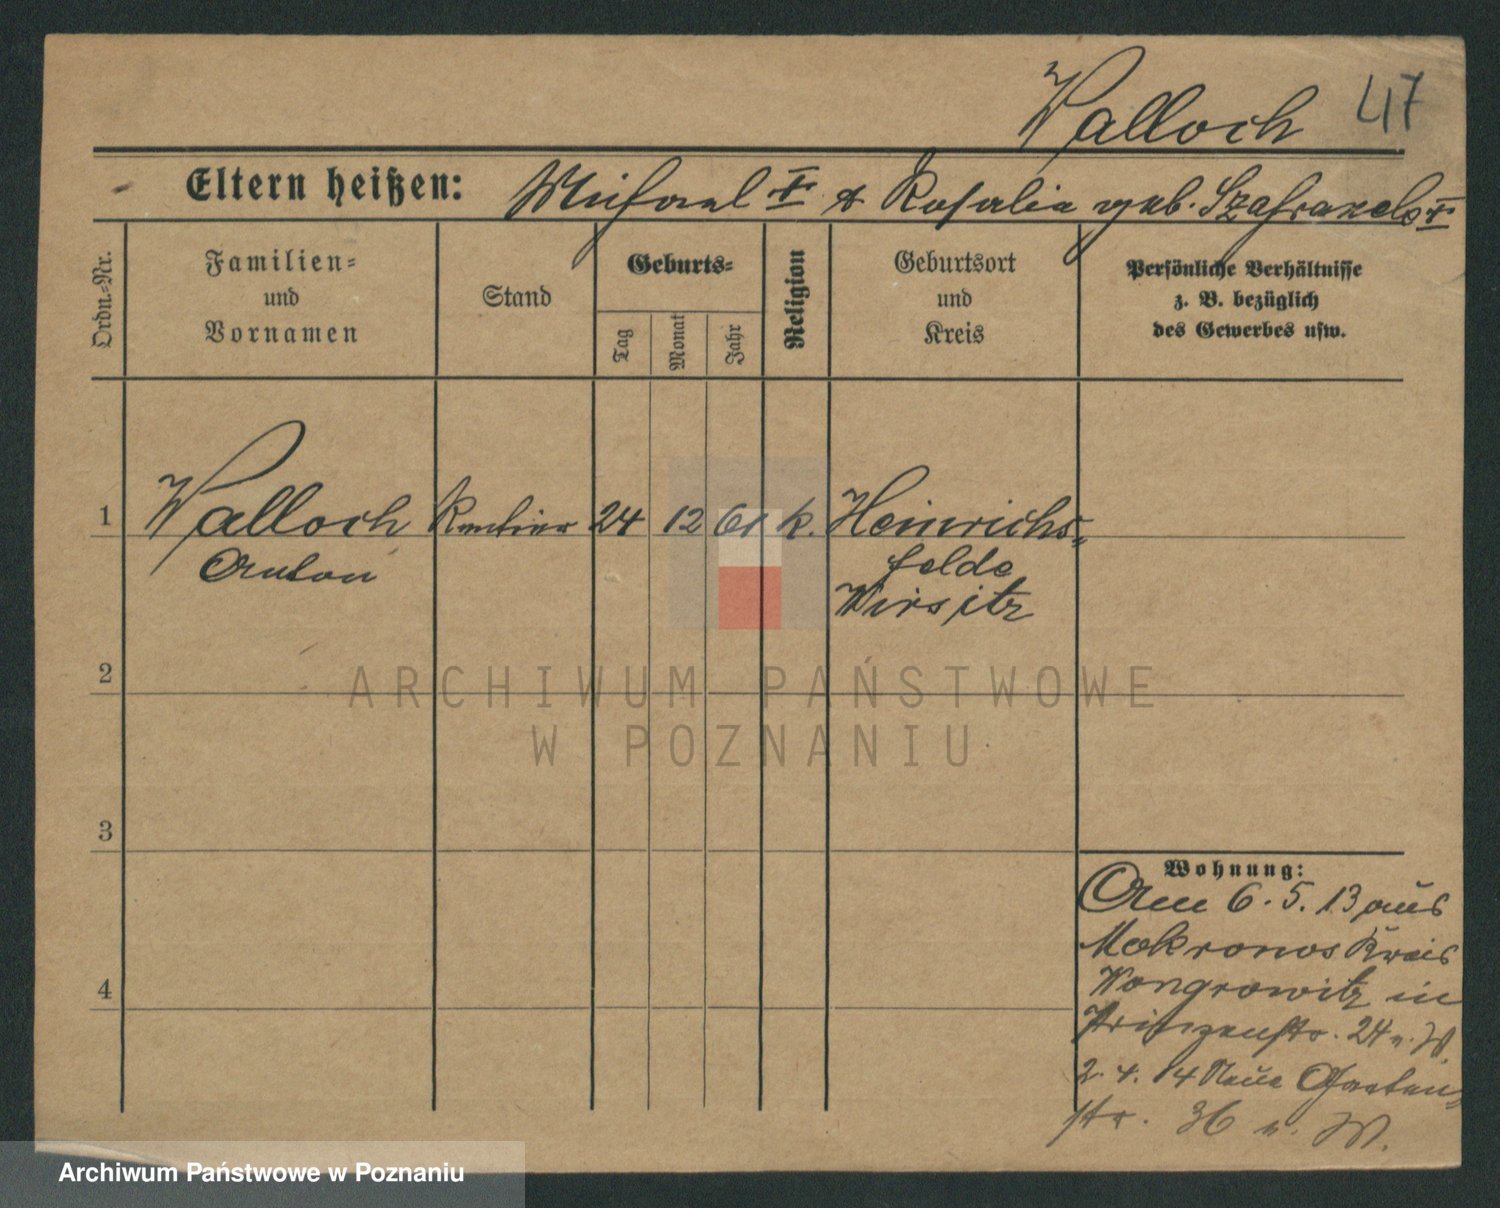 Walloch 47
Eltern heißen: Michael † & Rosalia geb. Szafranek †
Ordn.-Nr.
Familien-
und
Vornamen
Stand
Geburts-
Tag
Monat
Jahr
Religion
Geburtsort
und
Kreis
Persönliche Verhältnisse
z. B. bezüglich
des Gewerbes usw.
1 Walloch Rentier 24 12 61 k. Heinrichs-
Anton felde
Wirsitz
2
ARCHIWUM PAŃSTWOWE
W POZNANIU
3
Wohnung:
Am 6. 5. 13 aus
Mokronos Kreis
Wongrowitz in
4
Prinzenstr. 24 n. W.
2. 4. 14 Neue Garten-
str. 36 n. W.
Archiwum Państwowe w Poznaniu